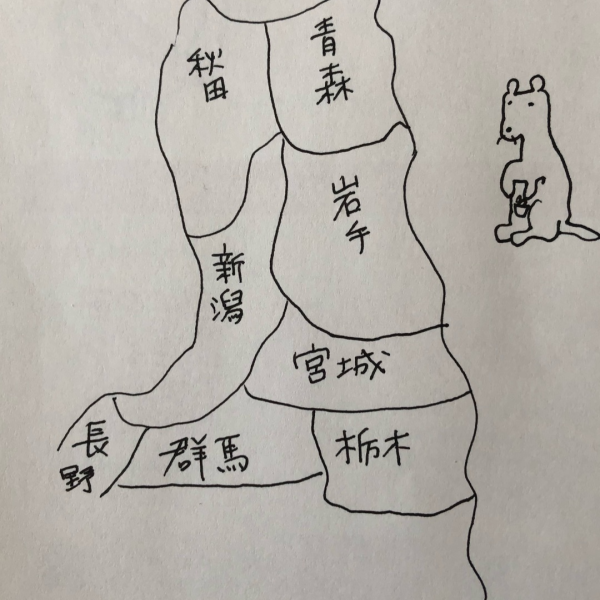 秋田
青森
岩手
新潟
宮城
長野
群馬
栃木